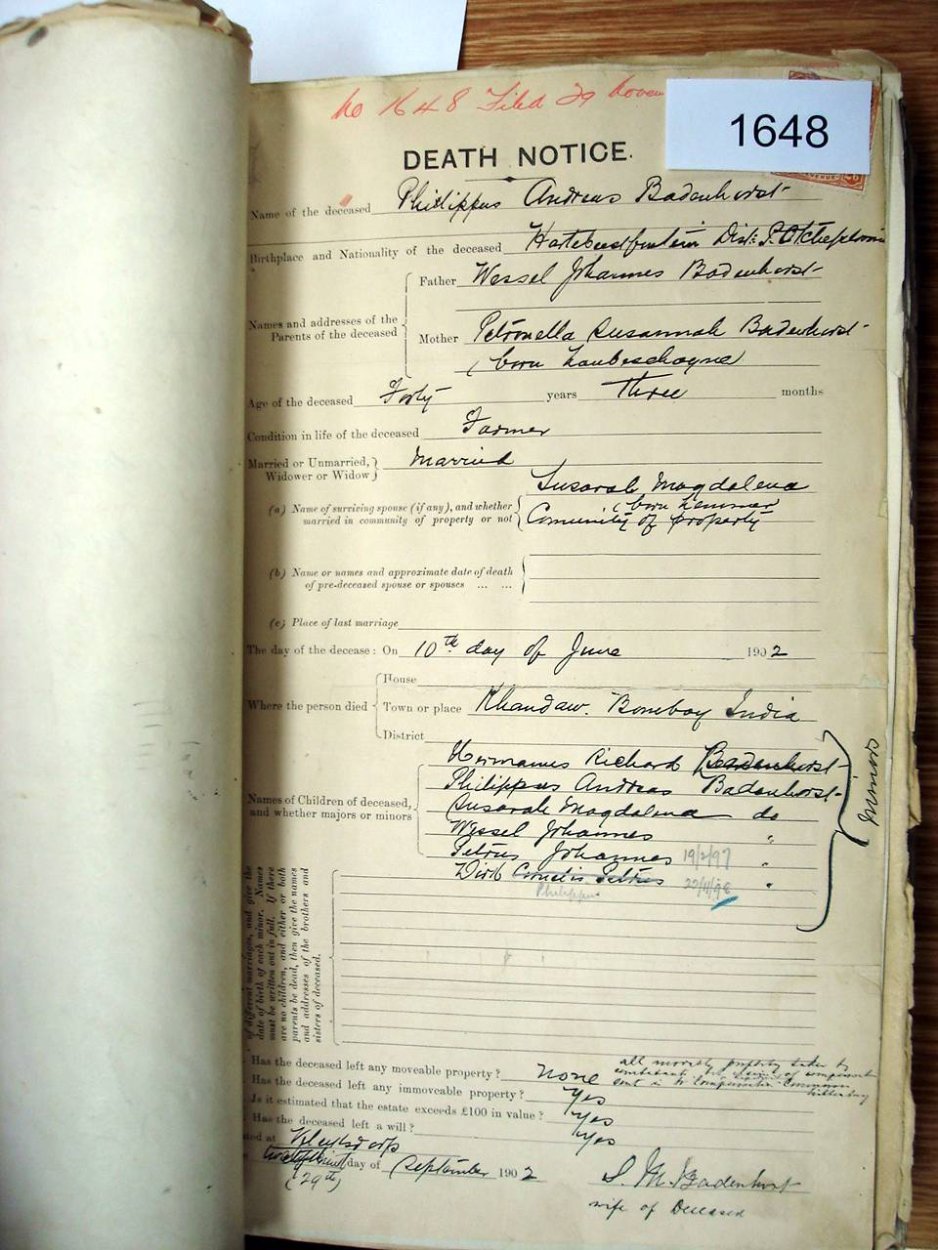 No 1648 Filed 29 Novem
1648
DEATH NOTICE.
Name of the deceased Phillippus Andreas Badenhorst
Birthplace and Nationality of the deceased Hartebeestfontein Dist: P.Otchefstroom
Names and addresses of the Parents of the deceased
Father Wessel Johannes Badenhorst
Mother Petronella Susannah Badenhorst
(born Laubschagne
Age of the deceased Forty years Three months
Condition in life of the deceased Farmer
Married or Unmarried, Widower or Widow Married
(a) Name of surviving spouse (if any), and whether married in community of property or not
Susarah Magdalena
(born Lemmer
Community of property
(b) Name or names and approximate date of death
of pre-deceased spouse or spouses ... ...
(c) Place of last marriage
The day of the decease: On 10th day of June 1902
Where the person died
House
Town or place Bombay India
District
Names of Children of deceased, and whether majors or minors
Hermanus Richard Badenhorst
Phillippus Andreas Badenhorst
Susarah Magdalena do
Wessel Johannes "
Petrus Johannes 19/2/97 "
Dirk Cornelis Petrus "
Philippus
Minors
of different marriages, and give the
date of birth of each minor. Names
must be written out in full. If there
are no children, and either or both
parents be dead, then give the names
and addresses of the brothers and
sisters of deceased.
Has the deceased left any moveable property? None
all movable property taken by
Has the deceased left any immoveable property? Yes
Is it estimated that the estate exceeds £100 in value? Yes
Has the deceased left a will? Yes
ted at Klerksdorp
day of September 1902
(29th)
S. M. Badenhorst
wife of Deceased